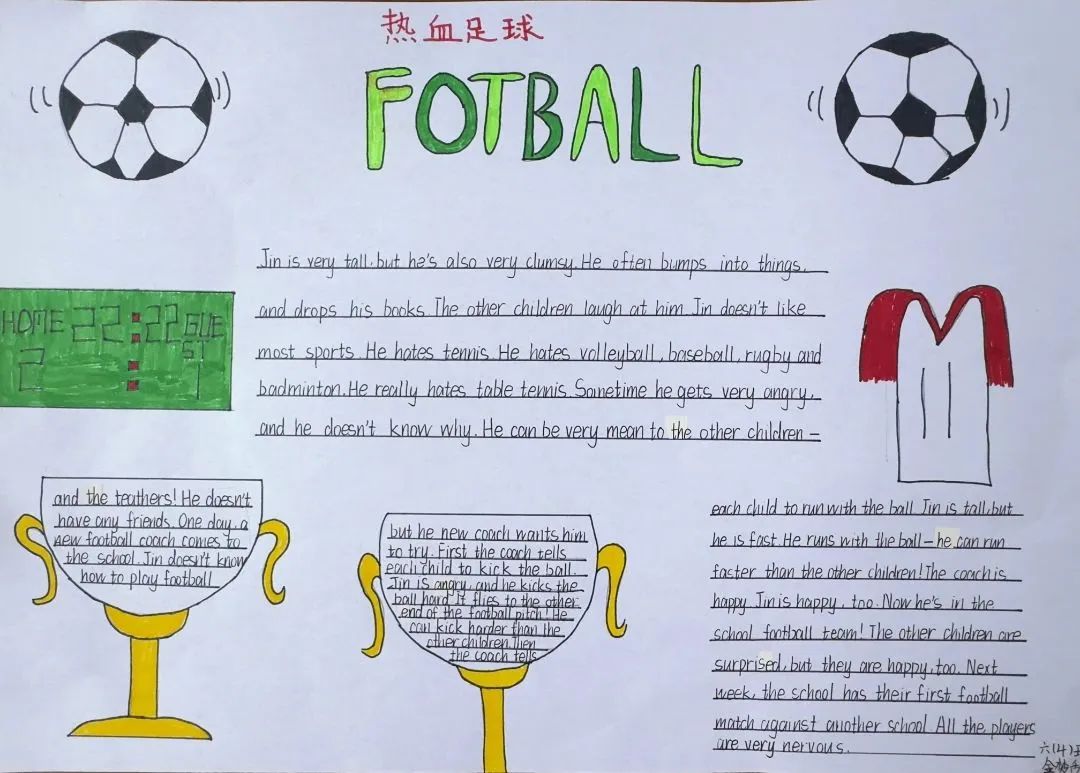 热血足球
FOTBALL
HOME 22:22 GUE
ST
2 : 1
Jin is very tall, but he's also very clumsy. He often bumps into things,
and drops his books. The other children laugh at him. Jin doesn't like
most sports. He hates tennis. He hates volleyball, baseball, rugby and
badminton. He really hates table tennis. Sometime he gets very angry,
and he doesn't know why. He can be very mean to the other children –
and the teathers! He doesn't
have any friends. One day, a
new football coach comes to
the school. Jin doesn't know
how to play football
but he new coach wants him
to try. First the coach tells
each child to kick the ball.
Jin is angry, and he kicks the
ball hard it flies to the other
end of the football pitch! He
can kick harder than the
other children. Then
the coach tells
each child to run with the ball. Jin is tall, but
he is fast. He runs with the ball – he can run
faster than the other children! The coach is
happy. Jin is happy, too. Now he's in the
school football team! The other children are
surprised, but they are happy, too. Next
week, the school has their first football
match against another school. All the players
are very nervous.
六(4)班
金